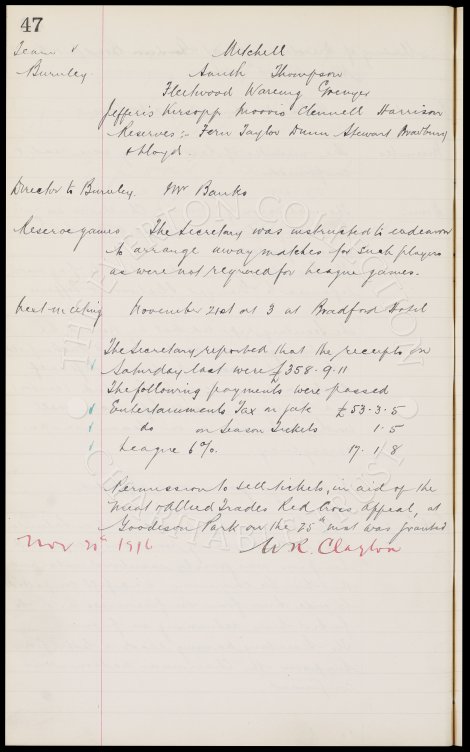 47
Team v Mitchell
Burnley. Smith Thompson
Fleetwood Wareing Grenyer
Jefferis Kirsopp Clennell Harrison
Reserves :- Fern Taylor Dunn Stewart Bradbury
& Lloyd.
Director to Burnley. Mr Banks
Reserve games The Secretary was instructed to endeavour
to arrange away matches for such players
as were not required for League games.
Next meeting November 21st at 3 at Bradford Hotel
The Secretary reported that the receipts on
Saturday last were £358.9.11
The following payments were passed
Entertainments Tax on gate £53.3.5
do on Season Tickets 1.5
League 6%. 17.1.8
Permission to sell tickets, in aid of the
Meat & Allied Trades Red Cross Appeal, at
Goodison Park on the 25th inst was granted
Nov 21st 1916 W.R. Clayton
THE EVERTON COLLECTION CHARITABLE TRUST